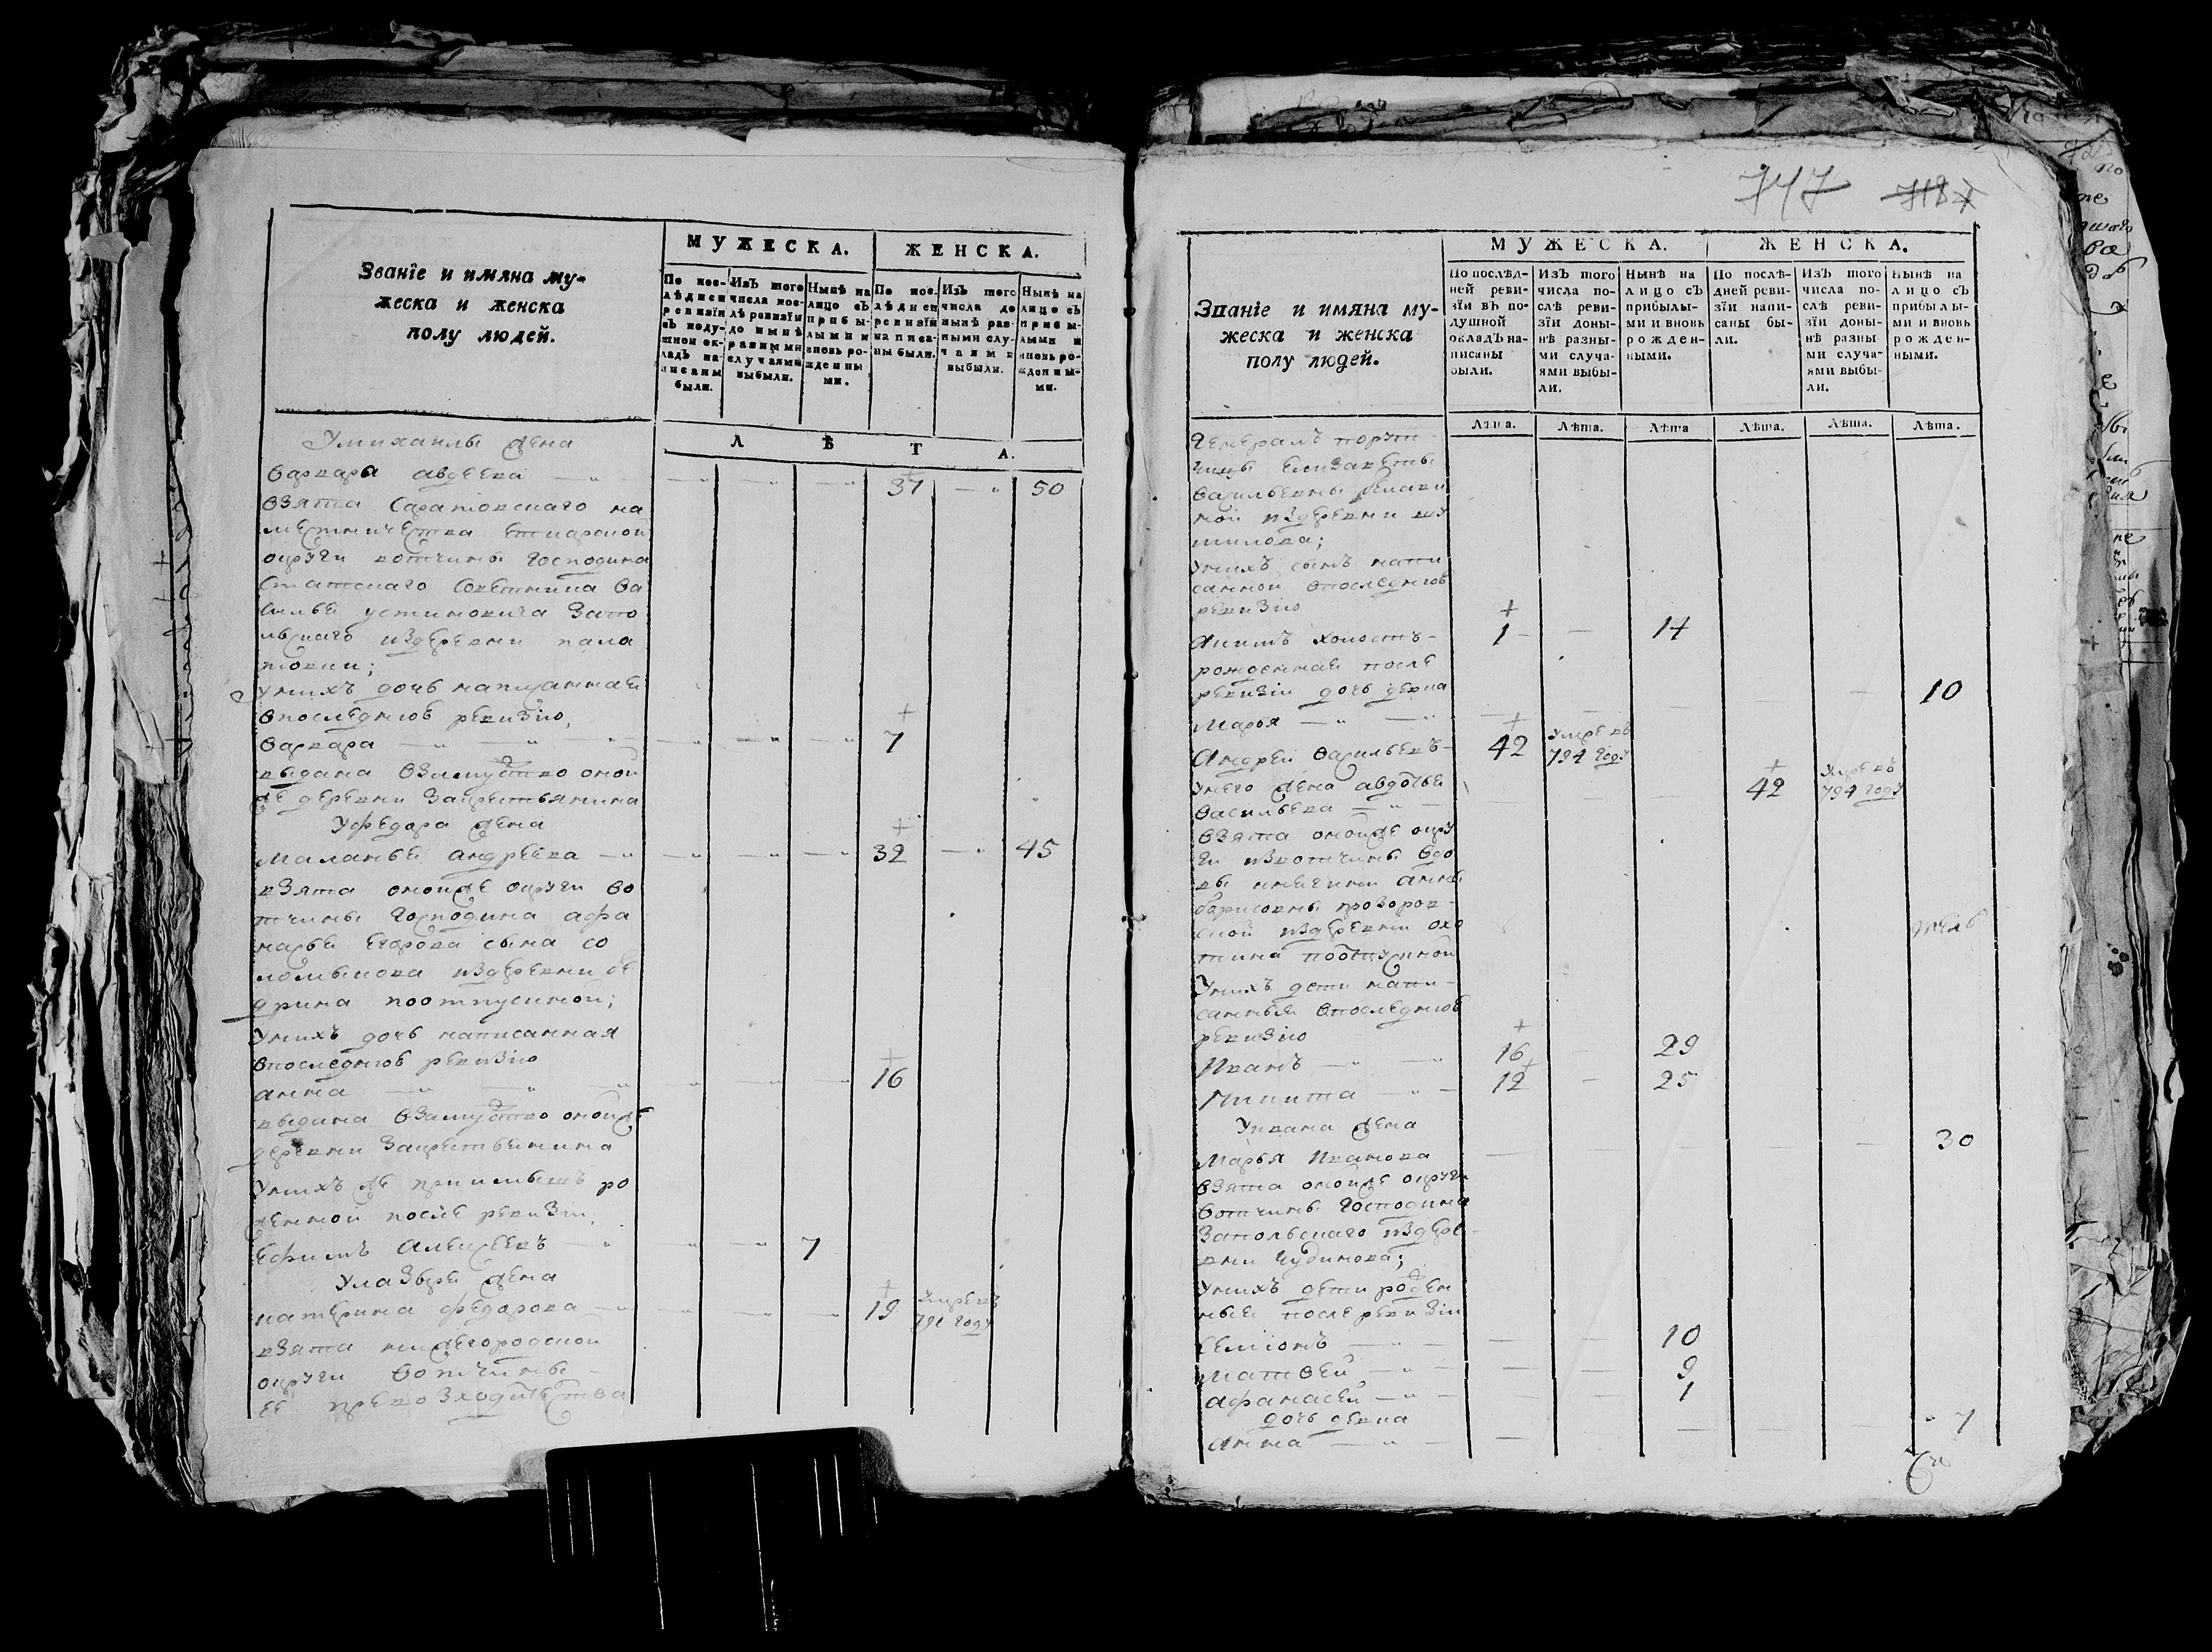 Званїе и имяна му-
жеска и женска
полу людей.
МУЖЕСКА.
ЖЕНСКА.
По пос-
лѣдней
ревизїи
въ поду-
шной ок-
ладъ на-
писаны
были.
Изъ того
числа пос-
лѣ ревизїи
до нынѣ
разными
случаями
выбыли.
Нынѣ на
лицо съ
прибы-
лыми и
вновь ро-
жденны-
ми.
По пос-
лѣдней
ревизїи
написа-
ны были.
Изъ того
числа до
нынѣ раз-
ными слу-
чаями
выбыли.
Нынѣ на
лицо съ
прибы-
лыми и
вновь ро-
жденны-
ми.
Л Ѣ Т А.
Умихаилы жена
варвара авдеева 37 50
взята Саратовскаго на
местничества
округи вотчины Господина
Статскаго Советника Ва
силья устиновича Запо
льскаго издеревни пала
товки;
унихъ дочь написанная
впоследнюю ревизию,
варвара 7
выдана взамужство оной
же деревни закрестьянина
Уфедора жена
Маланья андреева 32 45
взята онойже округи во
тчины господина афа
насья егорова сына со
ловыдеревни
дрина поотпускной;
Унихъ дочь написанная
впоследнюю ревизию
анна 16
выдана взамужство онойже
деревни закрестьянина
Унихъ же ро
жденной после ревизіи,
Ефимъ Алексеевъ 7
Улазаря жена
катерина федорова 19 Умре въ 791 году
взята нижегородской
округи вотчины
ее превозходительства
747
Званїе и имяна му-
жеска и женска
полу людей.
МУЖЕСКА.
ЖЕНСКА.
По послѣд-
ней реви-
зїи въ по-
душной
окладъ на-
писаны
были.
Изъ того
числа по-
слѣ реви-
зїи доны-
нѣ разны-
ми случа-
ями выбы-
ли.
Нынѣ на
лицо съ
прибылы-
ми и вновь
рожден-
ными.
По послѣ-
дней реви-
зїи напи-
саны бы-
ли.
Изъ того
числа по-
слѣ реви-
зїи доны-
нѣ разны-
ми случа-
ями выбы-
ли.
Нынѣ на
лицо съ
прибылы-
ми и вновь
рожден-
ными.
Лѣта. Лѣта. Лѣта Лѣта. Лѣта. Лѣта.
Генералъ порут
чицы Елизаветы
васильевны
ной издеревни шу
тилова;
унихъ сынъ напи
санной впоследнюю
ревизию
Акимъ холостъ 1 14
рожденная после
ревизіи дочь девка
Марья 10
Андрей васильевъ 42 Умре въ 794 году
Унего жена авдотья
васильева 42 Умре въ 794 году
взята онойже окру
ги извотчины вдо
вы княгини анны
борисовны прозоров
ской издеревни охо
тина поотпускной
Унихъ дети напи
санныя впоследнюю
ревизию
Иванъ 16 29
Никита 12 25
Уивана жена
Марья Иванова 30
взята онойже округи
вотчины Господина
Запольскаго издере
вни Чудинова;
Унихъ дети рожден
ныя после ревизіи
Семионъ 10
Матвей 9
афанасей 1
дочь девка
Анна 7